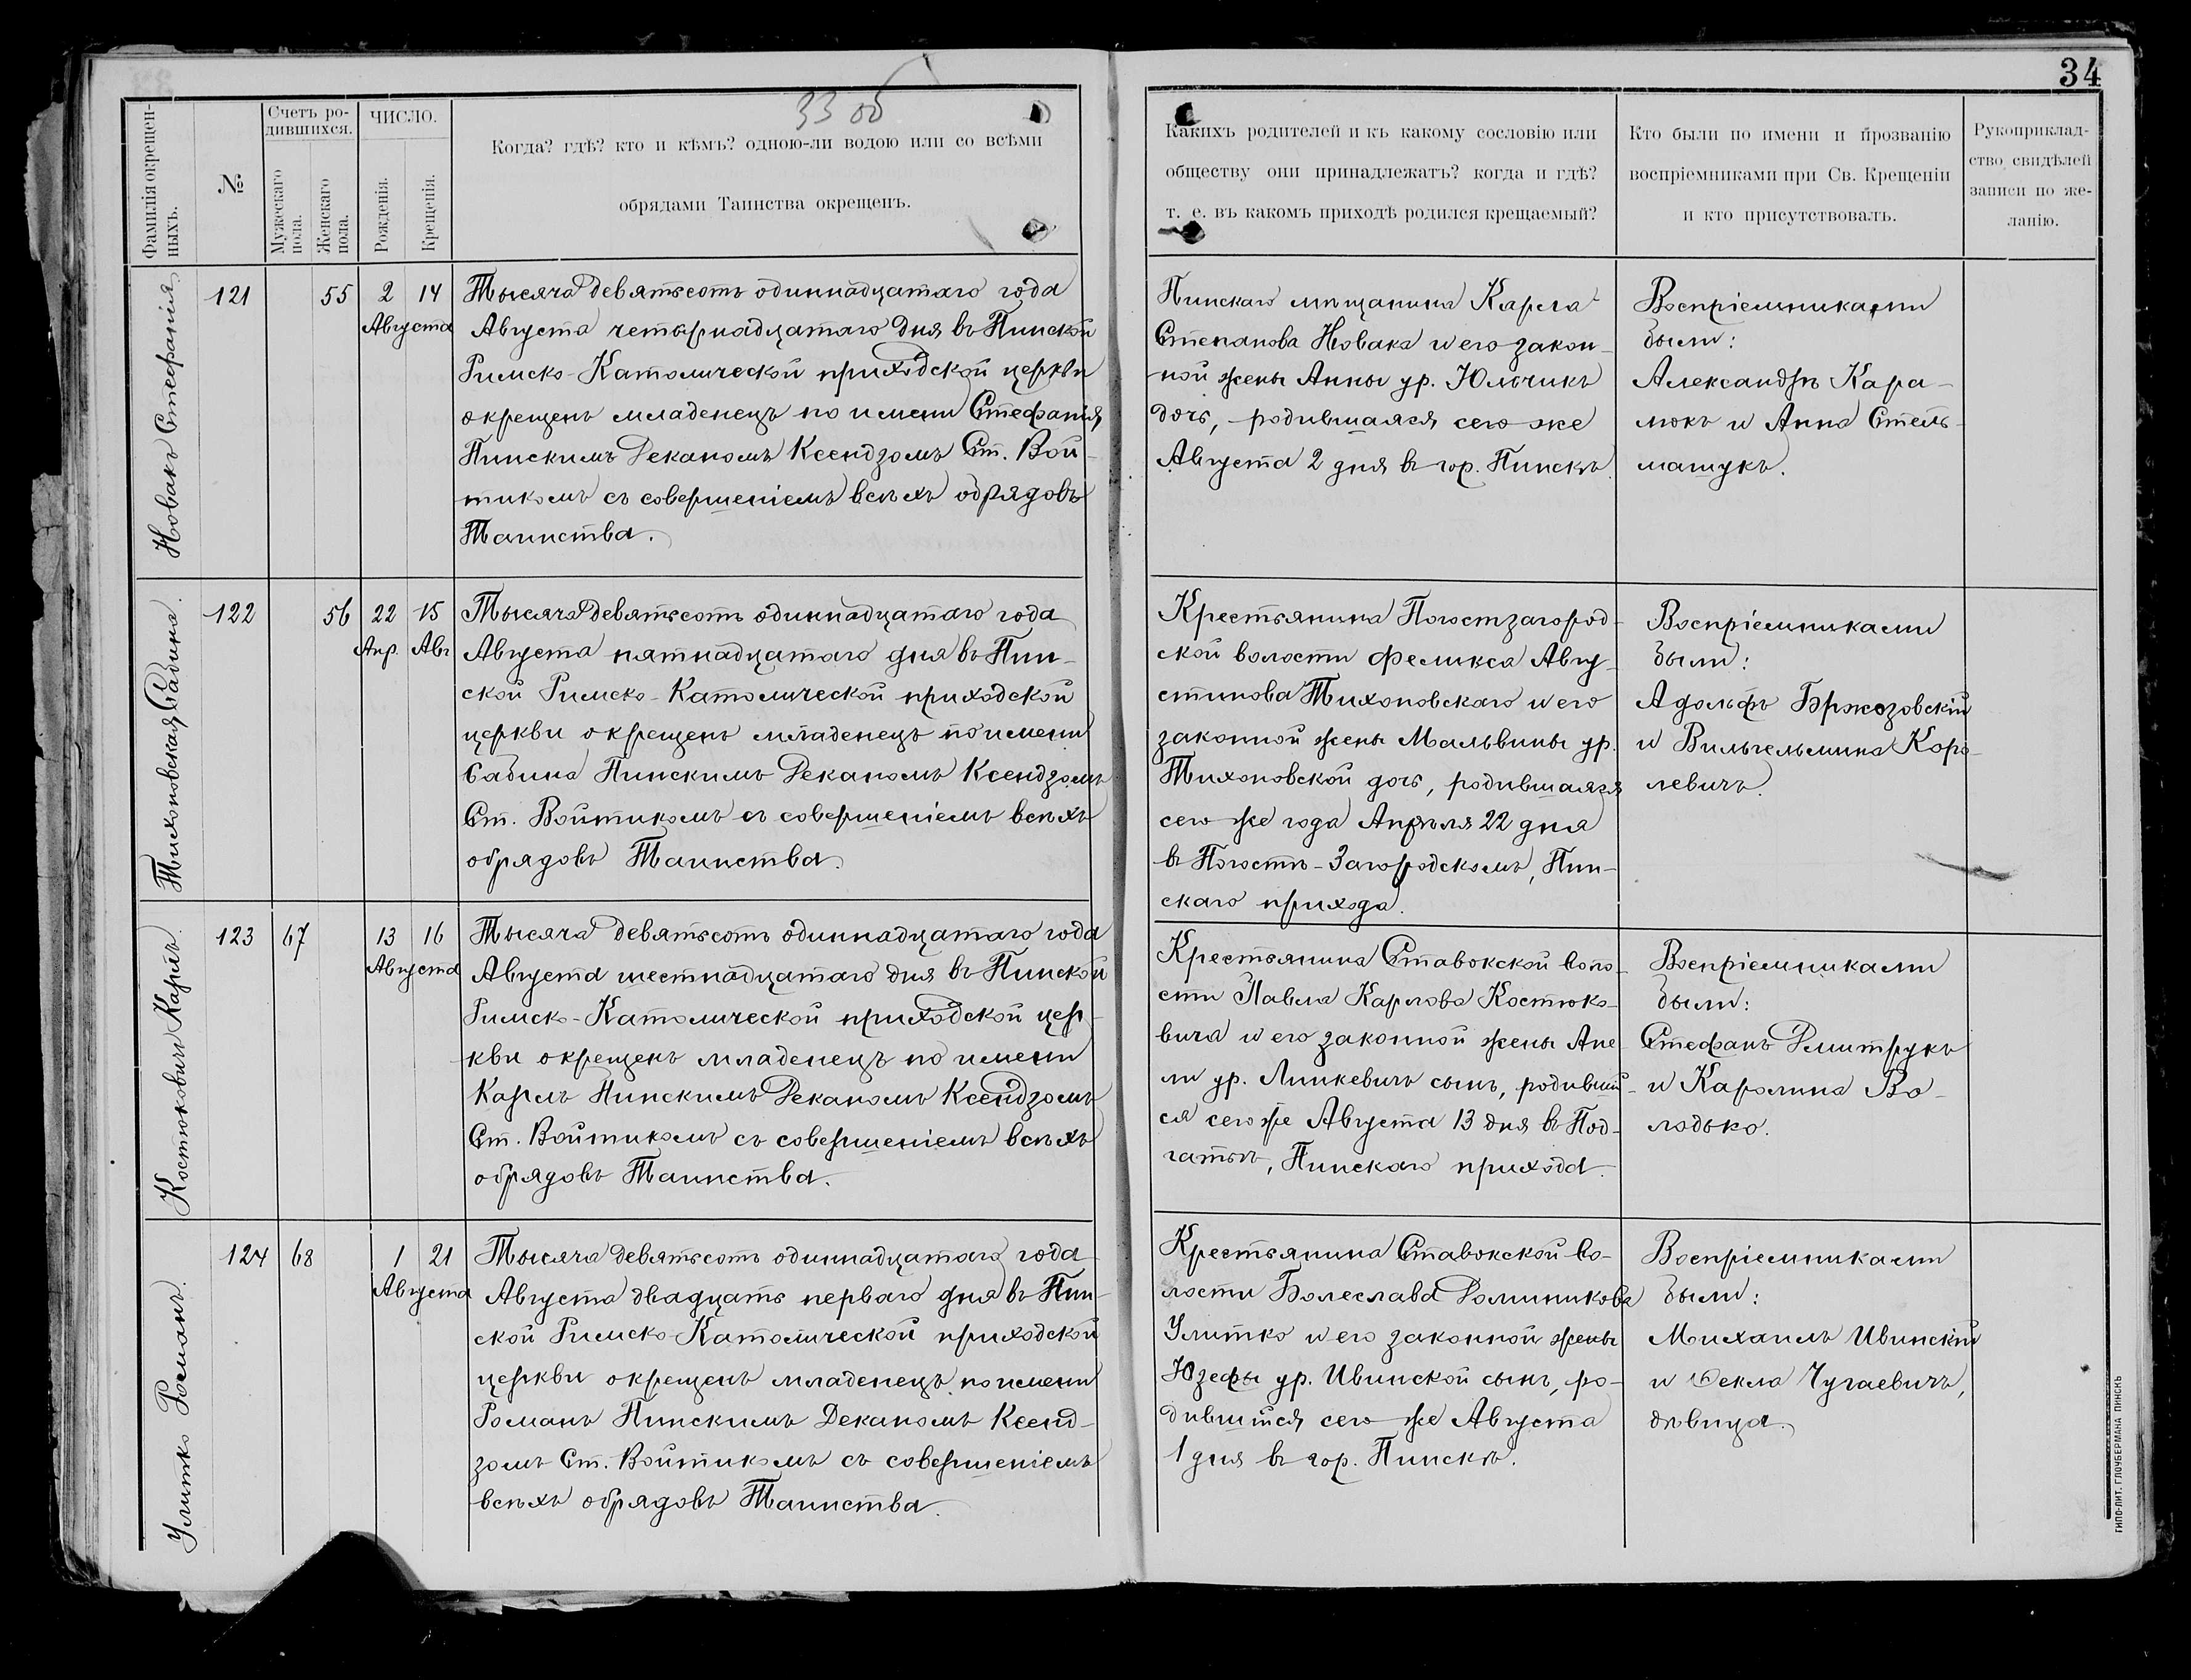 34
33 об
Фамилія окрещен-
ныхъ.
№
Счетъ ро-
дившихся.
Мужескаго
пола.
Женскаго
пола.
ЧИСЛО.
Рожденія.
Крещенія.
Когда? гдѣ? кто и кѣмъ? одною-ли водою или со всѣми
обрядами Таинства окрещенъ.
Какихъ родителей и къ какому сословію или
обществу они принадлежатъ? когда и гдѣ?
т. е. въ какомъ приходѣ родился крещаемый?
Кто были по имени и прозванію
воспріемниками при Св. Крещеніи
и кто присутствовалъ.
Рукоприклад-
ство свидѣлей
записи по же-
ланію.
Новакъ Стефанія
121
55
2 14
Августа
Тысяча девятьсотъ одиннадцатаго года
Августа четырнадцатаго дня въ Пинской
Римско-Католической приходской церкви
окрещенъ младенецъ по имени Стефанія
Пинскимъ Деканомъ Ксендзомъ Ст. Вой-
тикомъ съ совершеніемъ всѣхъ обрядовъ
Таинства.
Пинскаго мѣщанина Карла
Степанова Новака и его закон-
ной жены Анны ур. Юльчикъ
дочь, родившаяся сего же
Августа 2 дня въ гор. Пинскѣ.
Воспріемниками
были:
Александръ Кара-
люкъ и Анна Стель-
машукъ.
Тихоновская Сабина.
122
56
22 15
Апр. Авг
Тысяча девятьсотъ одиннадцатаго года
Августа пятнадцатаго дня въ Пин-
ской Римско-Католической приходской
церкви окрещенъ младенецъ по имени
Сабина Пинскимъ Деканомъ Ксендзомъ
Ст. Войтикомъ съ совершеніемъ всѣхъ
обрядовъ Таинства.
Крестьянина Погостзагород-
ской волости Феликса Авгу-
стинова Тихоновскаго и его
законной жены Мальвины ур.
Тихоновской дочь, родившаяся
сего же года Апрѣля 22 дня
въ Погостѣ-Загородскомъ, Пин-
скаго прихода.
Воспріемниками
были:
Адольфъ Бржозовскій
и Вильгельмина Коро-
левичъ.
Костюковичъ Карлъ.
123
67
13 16
Августа
Тысяча девятьсотъ одиннадцатаго года
Августа шестнадцатаго дня въ Пинской
Римско-Католической приходской цер-
кви окрещенъ младенецъ по имени
Карлъ Пинскимъ Деканомъ Ксендзомъ
Ст. Войтикомъ съ совершеніемъ всѣхъ
обрядовъ Таинства.
Крестьянина Ставокской воло-
сти Павла Карлова Костюко-
вича и его законной жены Ане-
ли ур. Линкевичъ сынъ, родивший-
ся сего же Августа 13 дня въ Под-
гатьѣ, Пинскаго прихода.
Воспріемниками
были:
Стефанъ Дмитрукъ
и Каролина Во-
лодько.
Улитко Романъ.
124
68
1 21
Августа
Тысяча девятьсотъ одиннадцатаго года
Августа двадцать перваго дня въ Пин-
ской Римско-Католической приходской
церкви окрещенъ младенецъ по имени
Романъ Пинскимъ Деканомъ Ксенд-
зомъ Ст. Войтикомъ съ совершеніемъ
всѣхъ обрядовъ Таинства.
Крестьянина Ставокской во-
лости Болеслава Доминикова
Улитко и его законной жены
Юзефы ур. Ивинской сынъ, ро-
дившійся сего же Августа
1 дня въ гор. Пинскѣ.
Воспріемниками
были:
Михаилъ Ивинскій
и Ѳекла Чугаевичъ,
дѣвица.
ТИПО-ЛИТ. ГЛОУБЕРМАНА ПИНСКЪ